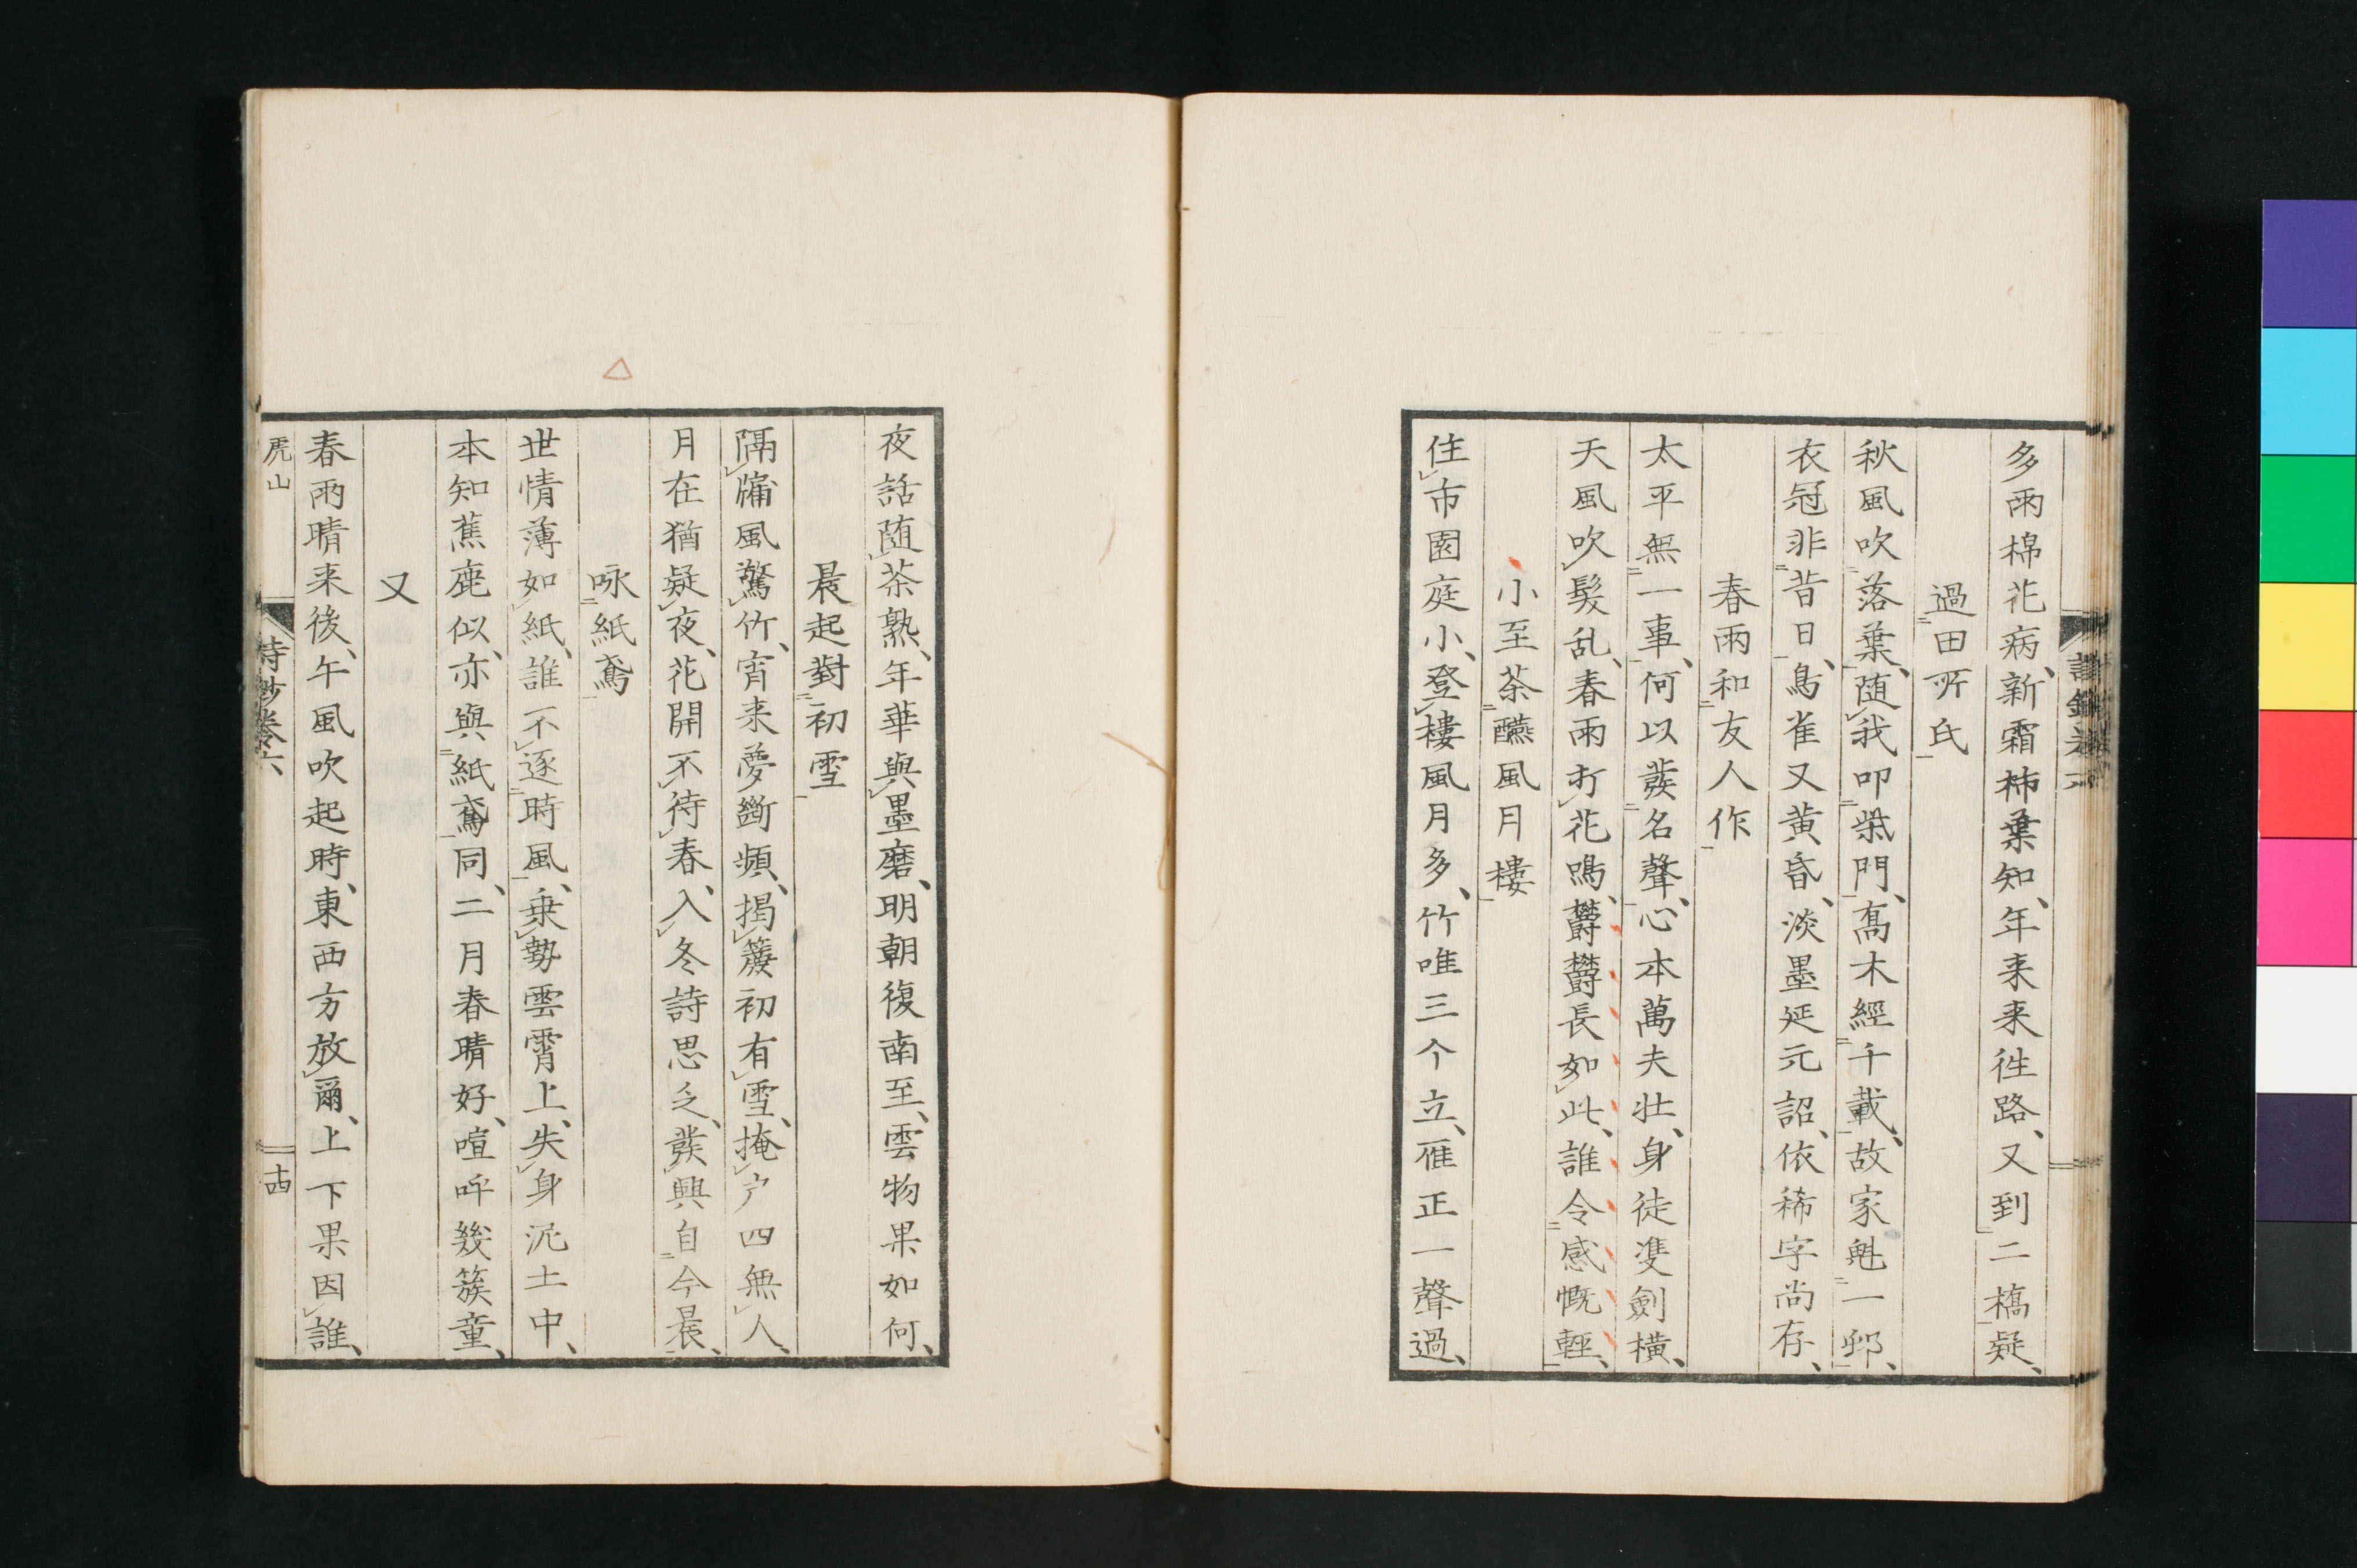 多雨棉花病、新霜柿葉知、年来来徃路、又到二橋疑、
過田所氏
秋風吹落葉、随我叩柴門、髙木經千載、故家魁一邨、
衣冠非昔日、鳥雀又黄昏、淡墨延元詔、依稀字尚存、
春雨和友人作
太平無一事、何以發名聲、心本萬夫壮、身徒隻劍橫、
天風吹髮乱、春雨打花鳴、欝欝長如此、誰令感慨輕、
小至茶醼風月樓
住市園庭小、登樓風月多、竹唯三个立、雁正一聲過、
詩鈔卷六
夜話随茶熟、年華與墨磨、明朝復南至、雲物果如何、
晨起對初雪
隔牖風驚竹、宵来夢斷頻、揭簾初有雪、掩户四無人、
月在猶疑夜、花開不待春、入冬詩思乏、發興自今晨、
咏紙鳶
世情薄如紙、誰不逐時風、乗勢雲霄上、失身泥土中、
本知蕉鹿似、亦與紙鳶同、二月春晴好、喧呼幾簇童、
又
春雨晴来後、午風吹起時、東西方放爾、上下果因誰、
虎山
詩鈔卷六
十四